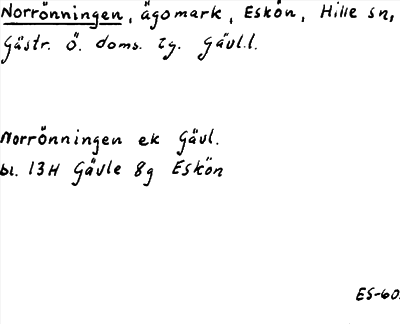 Norrönningen, ägomark, Eskön, Hille sn,
Gästr. Ö. doms. tg. Gävl.l.
Norrönningen ek Gävl.
bl. 13H Gävle 8g Eskön
ES-60.